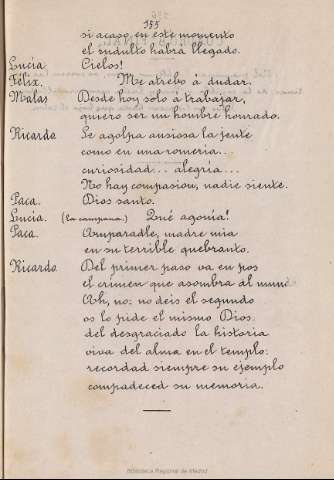 355
si acaso, en este momento
el indulto habrá llegado.
Lucia Cielos!
Félix. Me atrebo á dudar.
Malas Desde hoy solo á trabajar,
quiero ser un hombre honrado.
Ricardo Se agolpa ansiosa la jente
como en una romeria...
curiosidad... alegria...
No hay compasion, nadie siente.
Paca. Dios santo.
Lucia. (La campana.) Qué agonia!
Paca. Amparadle, madre mia
en su terrible quebranto.
Ricardo Del primer paso va en pos
el crimen que asombra al mund
Ah, no: no deis el segundo
os lo pide el mismo Dios.
del desgraciado la historia
viva del alma en el templo:
recordad siempre su ejemplo
compadeced su memoria.
Biblioteca Regional de Madrid